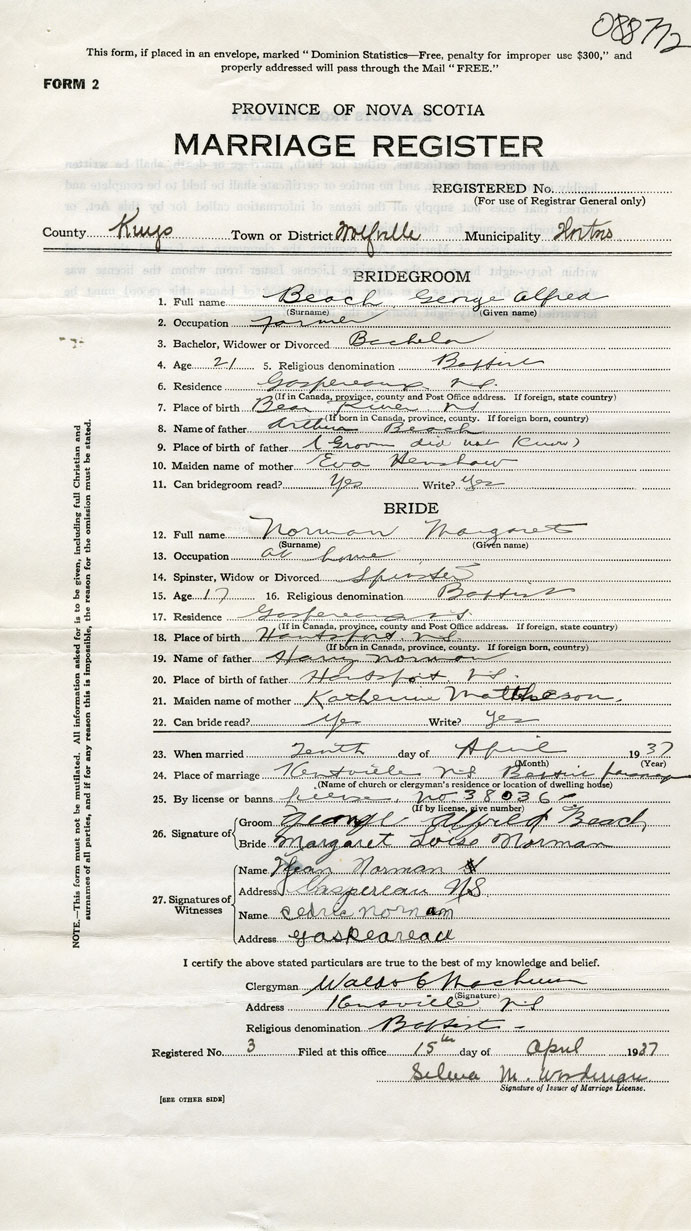 08872
This form, if placed in an envelope, marked "Dominion Statistics—Free, penalty for improper use $300," and
properly addressed will pass through the Mail "FREE."
FORM 2
PROVINCE OF NOVA SCOTIA
MARRIAGE REGISTER
REGISTERED No.
(For use of Registrar General only)
County Kings Town or District Wolfville Municipality Hortons
BRIDEGROOM
1. Full name Beach George Alfred
(Surname) (Given name)
2. Occupation farmer
3. Bachelor, Widower or Divorced Bachelor
4. Age 21 5. Religious denomination Baptist
6. Residence Gaspereaux N.S.
(If in Canada, province, county and Post Office address. If foreign, state country)
7. Place of birth Bear River NS
(If born in Canada, province, county. If foreign born, country)
8. Name of father Arthur Beach
9. Place of birth of father (Groom did not know)
10. Maiden name of mother Eva Henshaw
11. Can bridegroom read? Yes Write? Yes
BRIDE
12. Full name Norman Margaret
(Surname) (Given name)
13. Occupation at home
14. Spinster, Widow or Divorced Spinster
15. Age 17 16. Religious denomination Baptist
17. Residence Gaspereaux N.S.
(If in Canada, province, county and Post Office address. If foreign, state country)
18. Place of birth Hantsport, N.S.
(If born in Canada, province, county. If foreign born, country)
19. Name of father Harry Norman
20. Place of birth of father Hantsport, N.S.
21. Maiden name of mother Katherine Mattheson
22. Can bride read? Yes Write? Yes
23. When married Tenth day of April 1937
(Month) (Year)
24. Place of marriage Kentville N.S. Baptist parsonage
(Name of church or clergyman's residence or location of dwelling house)
25. By license or banns license, no. 38036
(If by license, give number)
26. Signature of Groom George Alfred Beach
Bride Margaret Loise Norman
27. Signatures of Witnesses
Name Jean Norman
Address Gaspereau NS
Name Cedric Nornam
Address gaskeareau
I certify the above stated particulars are true to the best of my knowledge and belief.
Clergyman Waldo C Machum
(Signature)
Address Kentville N.S.
Religious denomination Baptist -
Registered No. 3 Filed at this office 15th day of April 1937
Selena M.
Signature of Issuer of Marriage License.
[SEE OTHER SIDE]
NOTE.—This form must not be mutilated. All information asked for is to be given, including full Christian and
surnames of all parties, and if for any reason this is impossible, the reason for the omission must be stated.